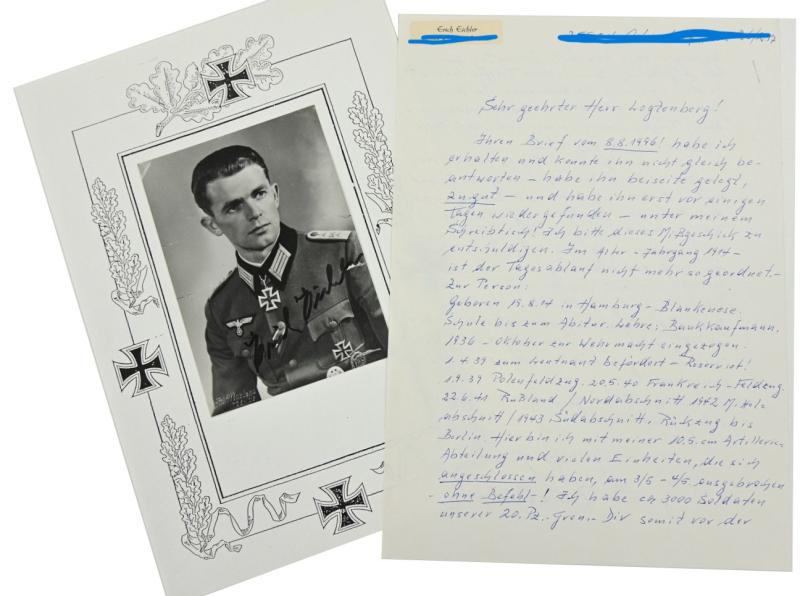 Erich Eichler
Sehr geehrter Herr Logtenberg!
Ihren Brief vom 8.8.1996! habe ich
erhalten und konnte ihn nicht gleich be-
antworten – habe ihn beiseite gelegt,
zu gut – und habe ihn erst vor einigen
Tagen wiedergefunden – unter meinem
Schreibtisch! Ich bitte dieses Mißgeschick zu
entschuldigen. Im Alter – Jahrgang 1914 –
ist der Tagesablauf nicht mehr so geordnet. –
Zur Person:
Geboren 19.8.14 in Hamburg – Blankenese.
Schule bis zum Abitur. Lehre: Bankkaufmann.
1936 – Oktober zur Wehrmacht eingezogen.
1.4.39 zum Leutnant befördert – Reservist!
1.9.39 Polenfeldzug. 20.5.40 Frankreich – Feldzug
22.6.41 Rußland / Nordabschnitt 1942 M.
abschnitt / 1943 Südabschnitt. Rückzug bis
Berlin. Hier bin ich mit meiner 10.5 cm Artillerie-
Abteilung und vielen Einheiten, die sich
angeschlossen haben, am 3/5 – 4/5 ausgebrochen
– ohne Befehl –! Ich habe ca 3000 Soldaten
unserer 20. Pz.-Gren.- Div somit vor der
Erich Eichler